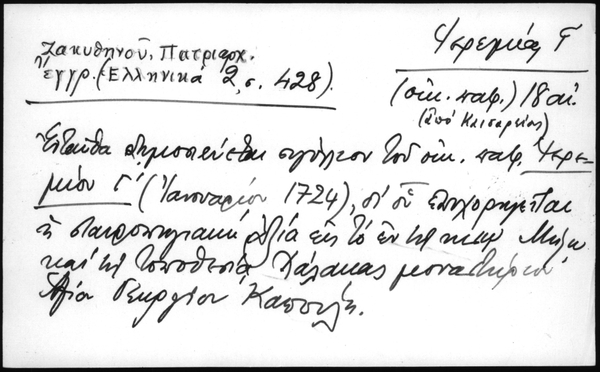 Ζακυθηνοῦ, Πατριαρχ.
ἔγγρ. (Ἑλληνικά 2, σ. 428).
Ἱερεμίας Γ΄
(οἰκ. πατρ.) 18 αἰ.
(ἀπό Καισαρείας)
Ἐνταῦθα δημοσιεύεται σιγίλλιον τοῦ οἰκ. πατρ. Ἱερε-
μίου Γ΄ (Ἰανουαρίου 1724), δι' οὗ ἐπιχορηγεῖται
ἡ σταυροπηγιακή ἀξία εἰς τό ἐν τῇ νήσῳ Μήλῳ
καί τῇ τοποθεσίᾳ Χάλακας μοναστήριον
Ἁγίου Γεωργίου